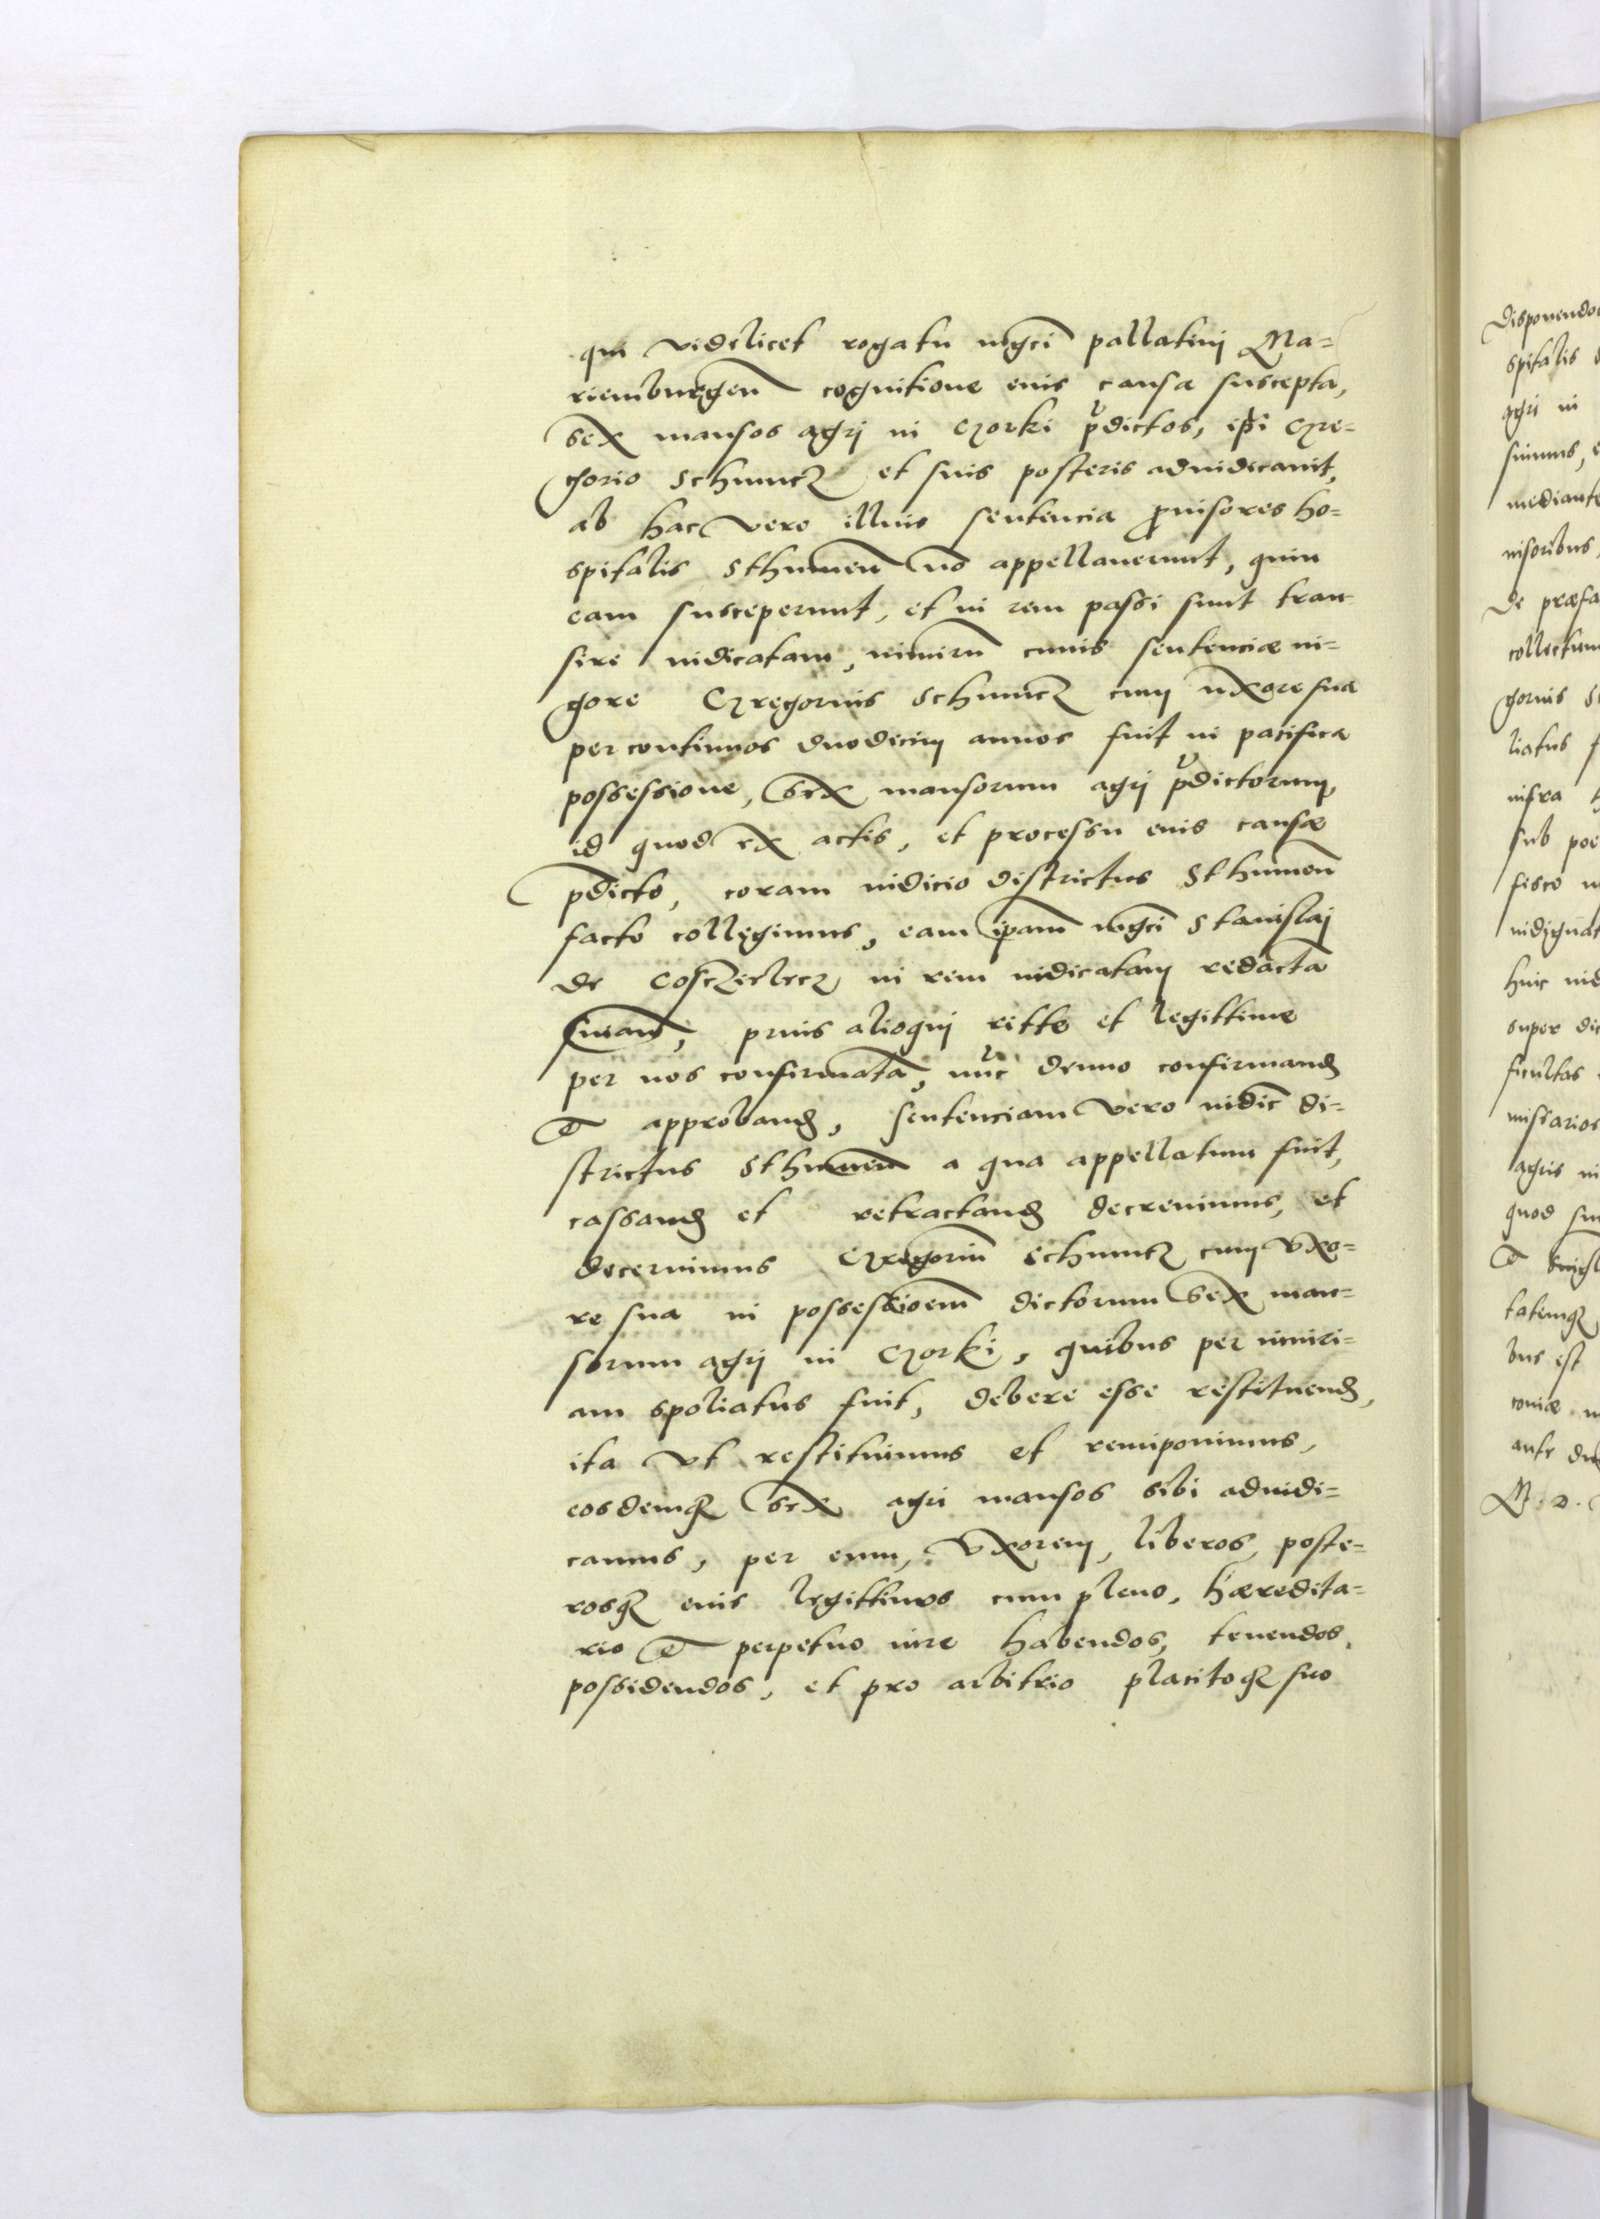 qui videlicet rogatu mgci pallatinj Ma=
riemburgen cognitione euis causæ suscepta,
sex mansos agrj in Czorki pdictos, ipsi Gre=
gorio Schumcz et suis posteris adiudicauit,
ab hac vero illius sentencia prouisores ho=
spitalis Sthumen no appellauerunt, quin
eam susceperunt, et in rem passi sunt tran
sire iudicatam, nimiru cuius sentenciæ ui=
gore Gregorius Schumcz cum uxore sua
per continuos duodecim annos fuit in pacifica
possessione, sex mansorum agrj pdictorum,
id quod ex actis, et processu eius causæ
pdicto, coram iudicio districtus Sthumen
facto collegimus, eam ipam mgci Stanislaj
de Cosczielecz in rem iudicatam redacta
sniam, prius alioqui ritte et legittime
per nos confirmata, nuc denuo confirmand
et approband, sentenciam vero iudic di=
strictus Sthumen a qua appellatum fuit,
cassand et retractand decreuimus, et
decernimus Gregoriu Schumcz cum vxo=
re sua in possessioem dictorum sex man=
sorum agrj in Czorki, quibus per iniuri=
am spoliatus fuit, debere esse restituend,
ita vt restituimus et reniponimus,
eosdemq sex agri mansos sibi adiudi=
camus, per eum, vxorem, liberos, poste=
rosq euis legittimos cum pleno, hæredita=
rio et perpetuo iure habendos, tenendos,
possidendos, et pro arbitrio placitoq suo
spitalis
agri in
mediante
uisoribus,
De præfa
liatus
infra
sub poe
fisco
super dic
ficultas
agris in
quod
bus est